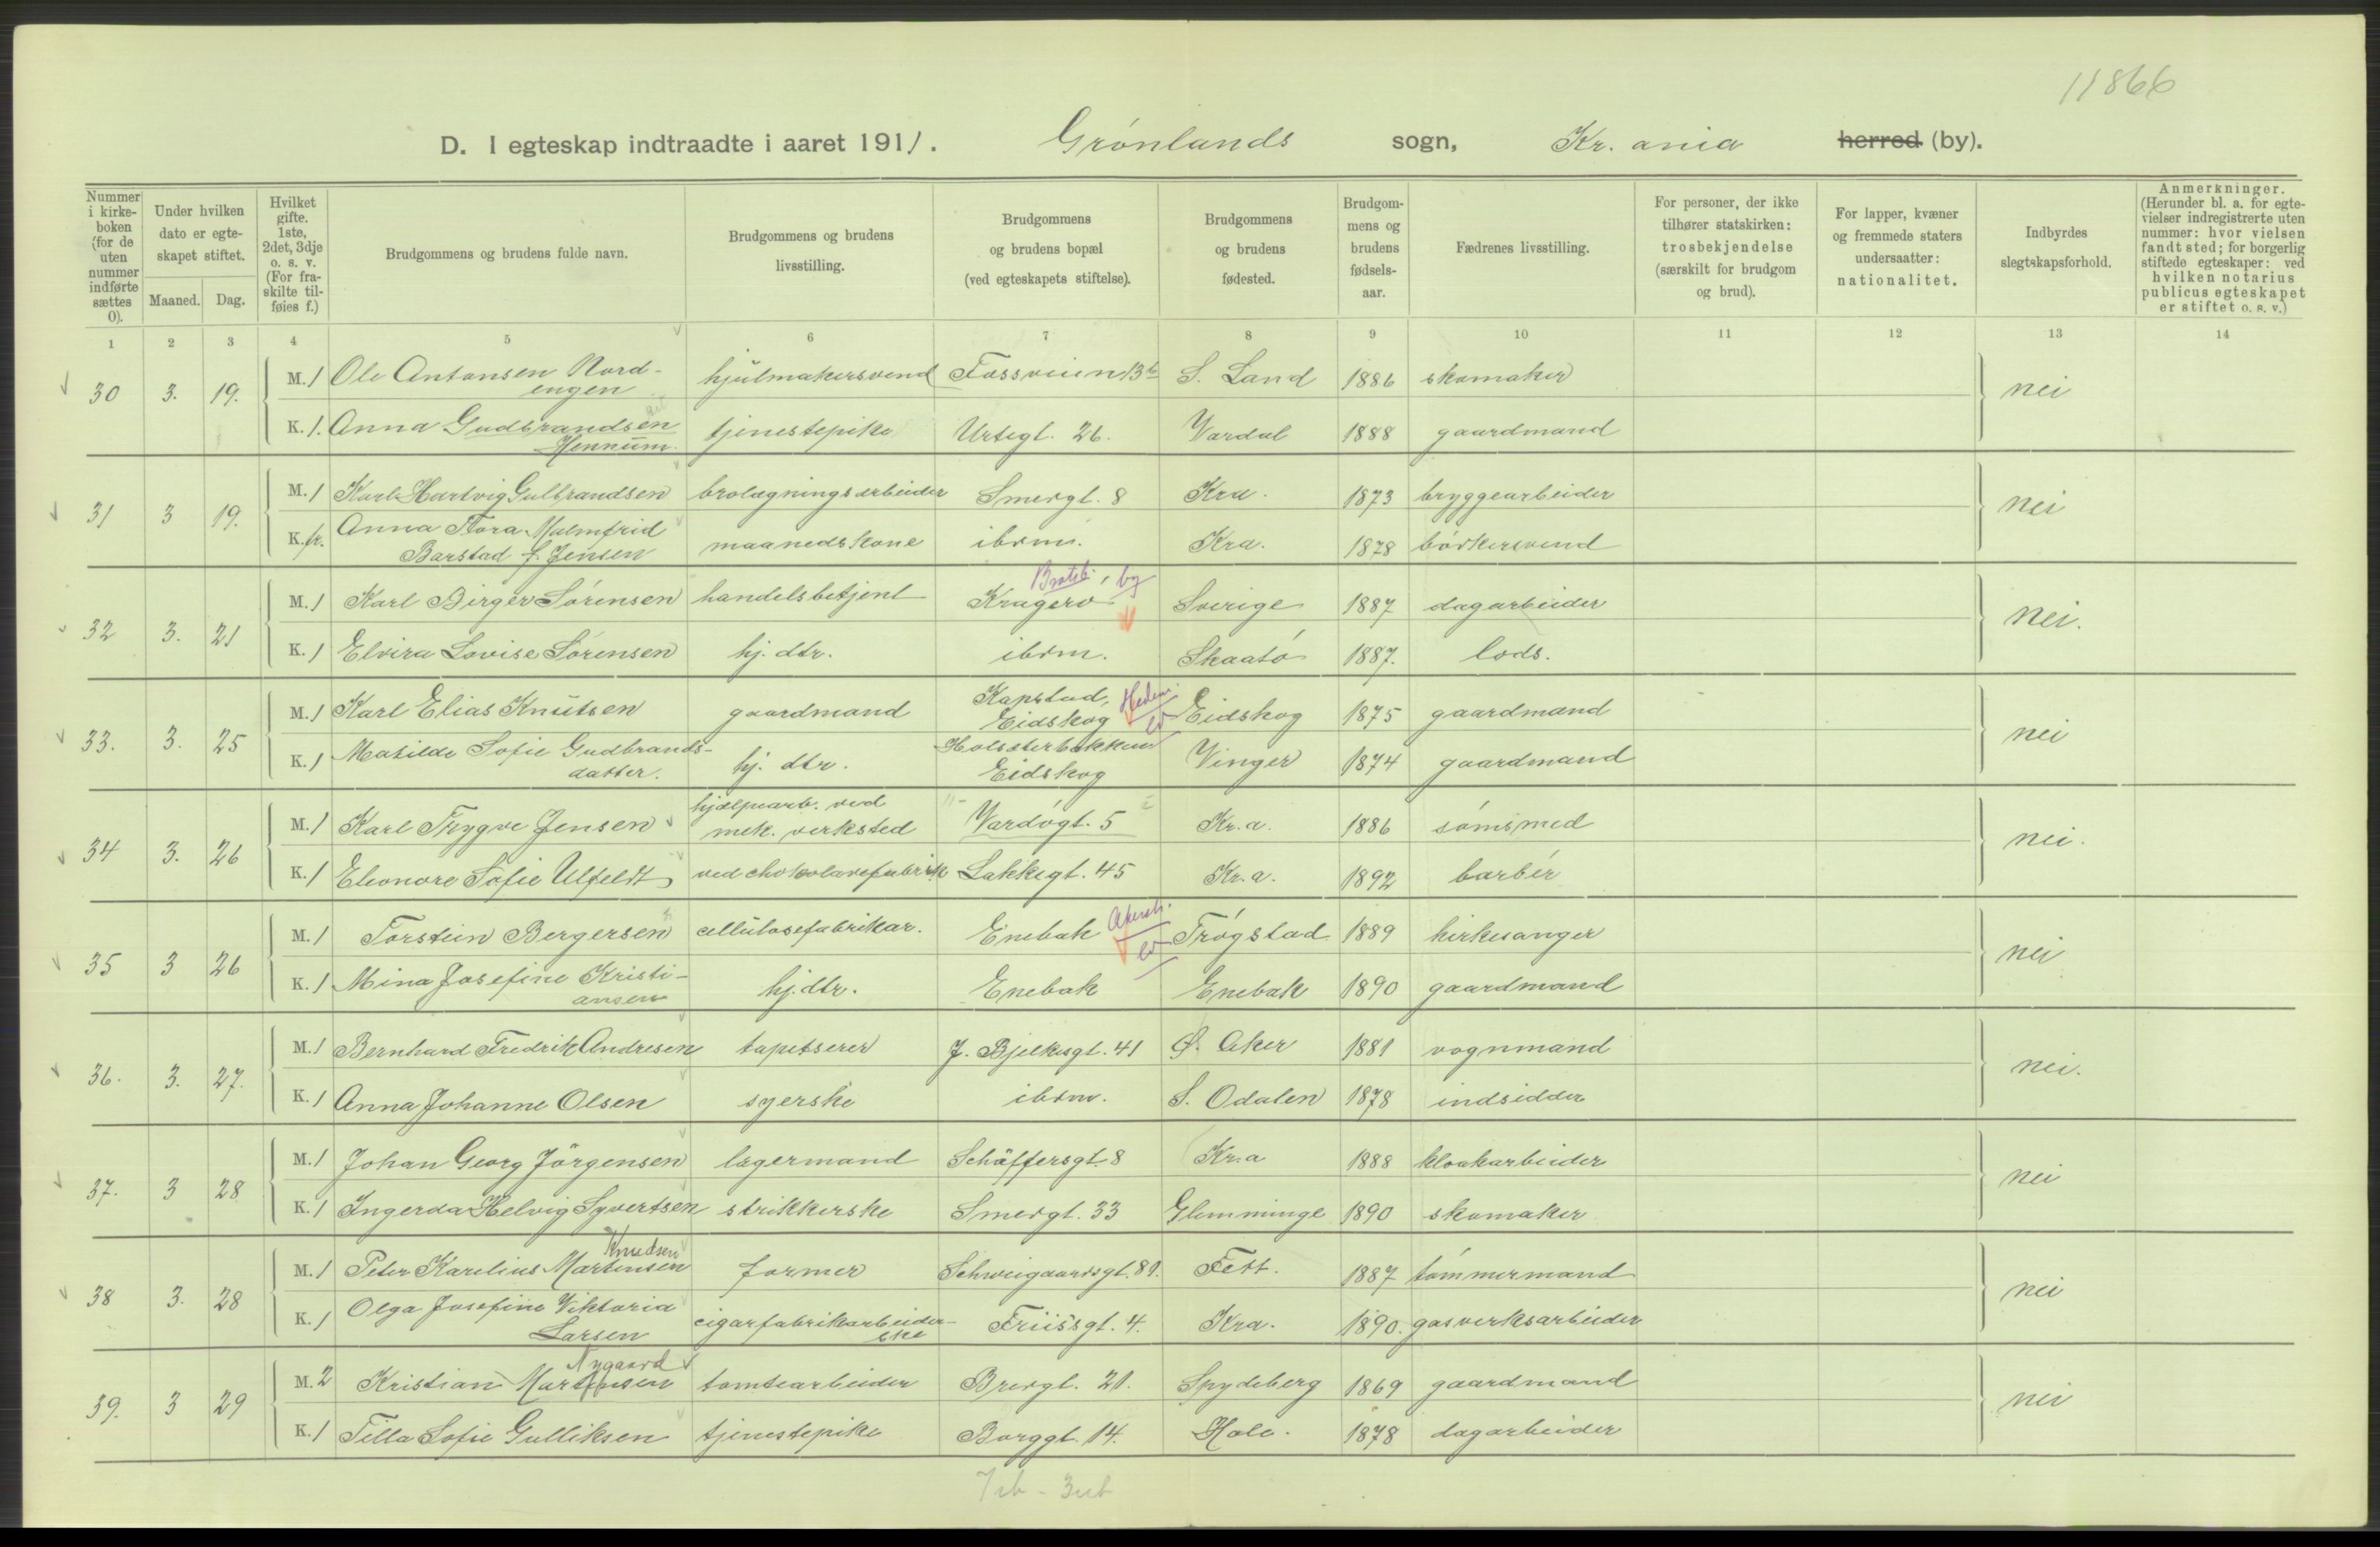 11866
D. I egteskap indtraadte i aaret 1911. Grønlands sogn, Kr.ania herred (by).
Nummer i kirkeboken (for de uten nummer indførte sættes 0).
Under hvilken dato er egteskapet stiftet.
Maaned. Dag.
Hvilket gifte. 1ste, 2det, 3dje o. s. v. (For fraskilte tilføies f.)
Brudgommens og brudens fulde navn.
Brudgommens og brudens livsstilling.
Brudgommens og brudens bopæl (ved egteskapets stiftelse).
Brudgommens og brudens fødested.
Brudgommens og brudens fødselsaar.
Fædrenes livsstilling.
For personer, der ikke tilhører statskirken: trosbekjendelse (særskilt for brudgom og brud).
For lapper, kvæner og fremmede staters undersaatter: nationalitet.
Indbyrdes slegtskapsforhold.
Anmerkninger. (Herunder bl. a. for egtevielser indregistrerte uten nummer: hvor vielsen fandt sted; for borgerlig stiftede egteskaper: ved hvilken notarius publicus egteskapet er stiftet o. s. v.)
1 2 3 4 5 6 7 8 9 10 11 12 13 14
30 3. 19. M. 1 Ole Antonsen Nordengen hjulmakersvend Fossveien 13b S. Land 1886 skomaker nei
K. 1. Anna Gudbrandsen Hennum tjenestepike Urtegt. 26. Vardal 1888 gaardmand
31 3 19. M. 1 Karl Hartvig Gulbrandsen brolægningsarbeider Smedgt. 8 Kra. 1873 bryggearbeider nei
K. fr. Anna Thora Malmfrid Barstad f. Jensen maanedskone ibdm. Kra. 1878 bødkersvend
32 3. 21 M. 1 Karl Birger Sørensen handelsbetjent Kragerø Bratsb. by Sverige 1887 dagarbeider nei.
K. 1 Elvira Lovise Sørensen hj. dtr. ibdm. Skaatø 1887. lods.
33. 3. 25 M. 1 Karl Elias Knutsen gaardmand Kapstad, Eidskog Hedm. Eidskog 1875 gaardmand nei
K. 1 Matilde Sofie Gudbrandsdatter. hj. dtr. Holsterbakken Eidskog Vinger 1874 gaardmand
34 3. 26 M. 1 Karl Trygve Jensen hjælpearb. ved mek. verksted Vardøgt. 5 Kr.a. 1886 sømsmed nei.
K. 1 Eleonore Sofie Ulfeldt ved chokoladefabrik Lakkegt. 45 Kr.a. 1892 barbér
35 3 26 M. 1 Torstein Bergersen cellulosefabrikar. Enebak Akersh. Trøgstad 1889 kirkesanger nei
K. 1 Mina Josefine Kristiansen hj. dtr. Enebak Enebak 1890 gaardmand
36. 3. 27. M. 1 Bernhard Fredrik Andresen tapetserer J. Bjelkesgt. 41 Ø. Aker 1881 vognmand nei.
K. 1 Anna Johanne Olsen syerske ibdm. S. Odalen 1878 indsidder
37. 3 28 M. 1 Johan Georg Jörgensen lagermand Schäffersgt. 8 Kr.a 1888 kloakarbeider nei
K. 1 Ingerda Helvig Syvertsen strikkerske Smedgt. 33 Glemminge 1890 skomaker
38 3. 28 M. 1 Peter Karelius Martinsen Knudsen former Schweigaardsgt. 81. Fett. 1887 tømmermand nei
K. 1 Olga Josefine Viktoria Larsen cigarfabrikarbeiderske Friisgt. 4. Kra. 1890. gasverksarbeider
39. 3 29 M. 2 Kristian Martinsen Nygaard tomtearbeider Bredgt. 21. Spydeberg 1869 gaardmand nei
K. 1 Tilla Sofie Gulliksen tjenestepike Borggt. 14. Hole. 1878 dagarbeider